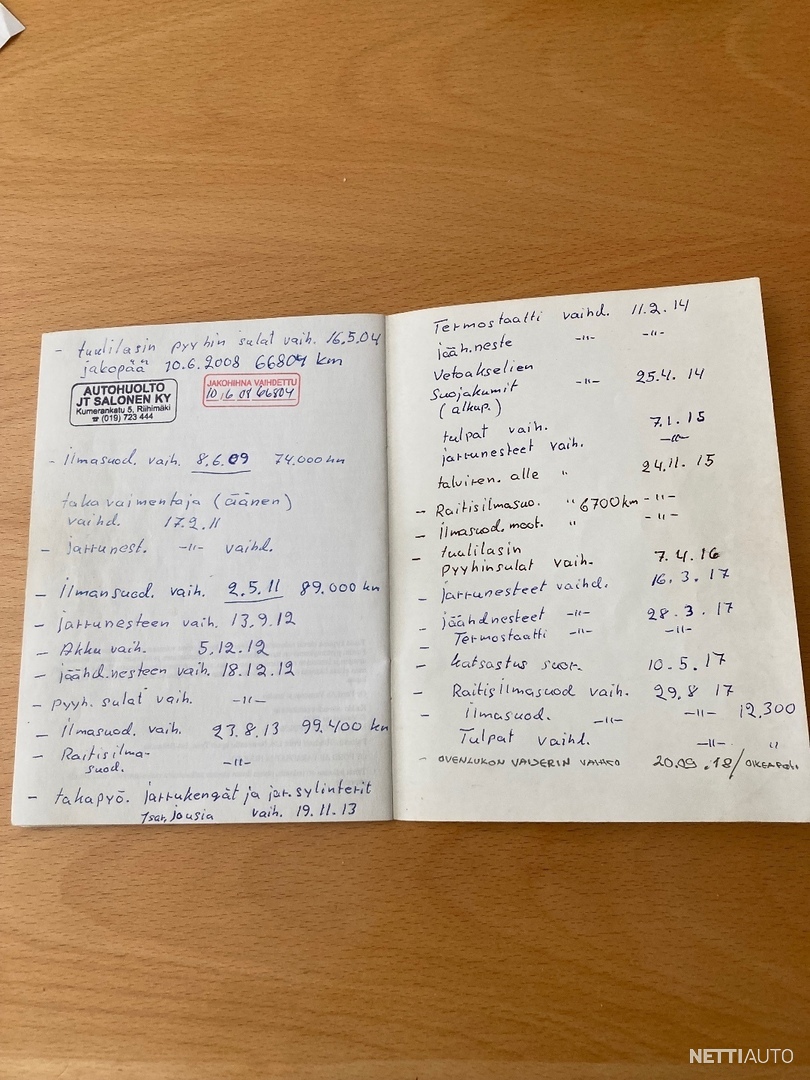 - tuulilasin pyyhin sulat vaih. 16.5.04
jakopää 10.6.2008 66804 km
AUTOHUOLTO
JT SALONEN KY
Kumerankatu 5, Riihimäki
☎ (019) 723 444
JAKOHIHNA VAIHDETTU
10.6.08 66804
- ilmasuod. vaih. 8.6.09 74.000 km
takavaimentaja (äänen)
vaihd. 17.2.11
- jarrunest. -11- vaihd.
- ilmansuod. vaih. 2.5.11 89.000 km
- jarrunesteen vaih. 13.9.12
- Akku vaih. 5.12.12
- jäähd.nesteen vaih. 18.12.12
- pyyh. sulat vaih. -11-
- ilmasuod. vaih. 23.8.13 99.400 km
- Raitisilma-
suod. -11-
- takapyö. jarrukengät ja jar.sylinterit
jousia vaih. 19.11.13
Termostaatti vaihd. 11.2.14
jääh.neste -11- -11-
Vetoakselien
suojakumit -11- 25.4.14
(alkup.)
tulpat vaih. 7.1.15
jarrunesteet vaih. -11-
talviren. alle " 24.11.15
- Raitisilmasuo. " 6700 km -11-
- ilmasuod. moot. " -11-
- tuulilasin
pyyhinsulat vaih. 7.4.16
- jarrunesteet vaihd. 16.3.17
- jäähdnesteet -11- 28.3.17
- Termostaatti -11- -11-
- katsastus suor. 10.5.17
- Raitisilmasuod vaih. 29.8 17
- ilmasuod. -11- -11- 12.300
Tulpat vaihd. -11- "
- OVENLUKON VAIJERIN VAIHTO 20.09.18/
NETTIAUTO